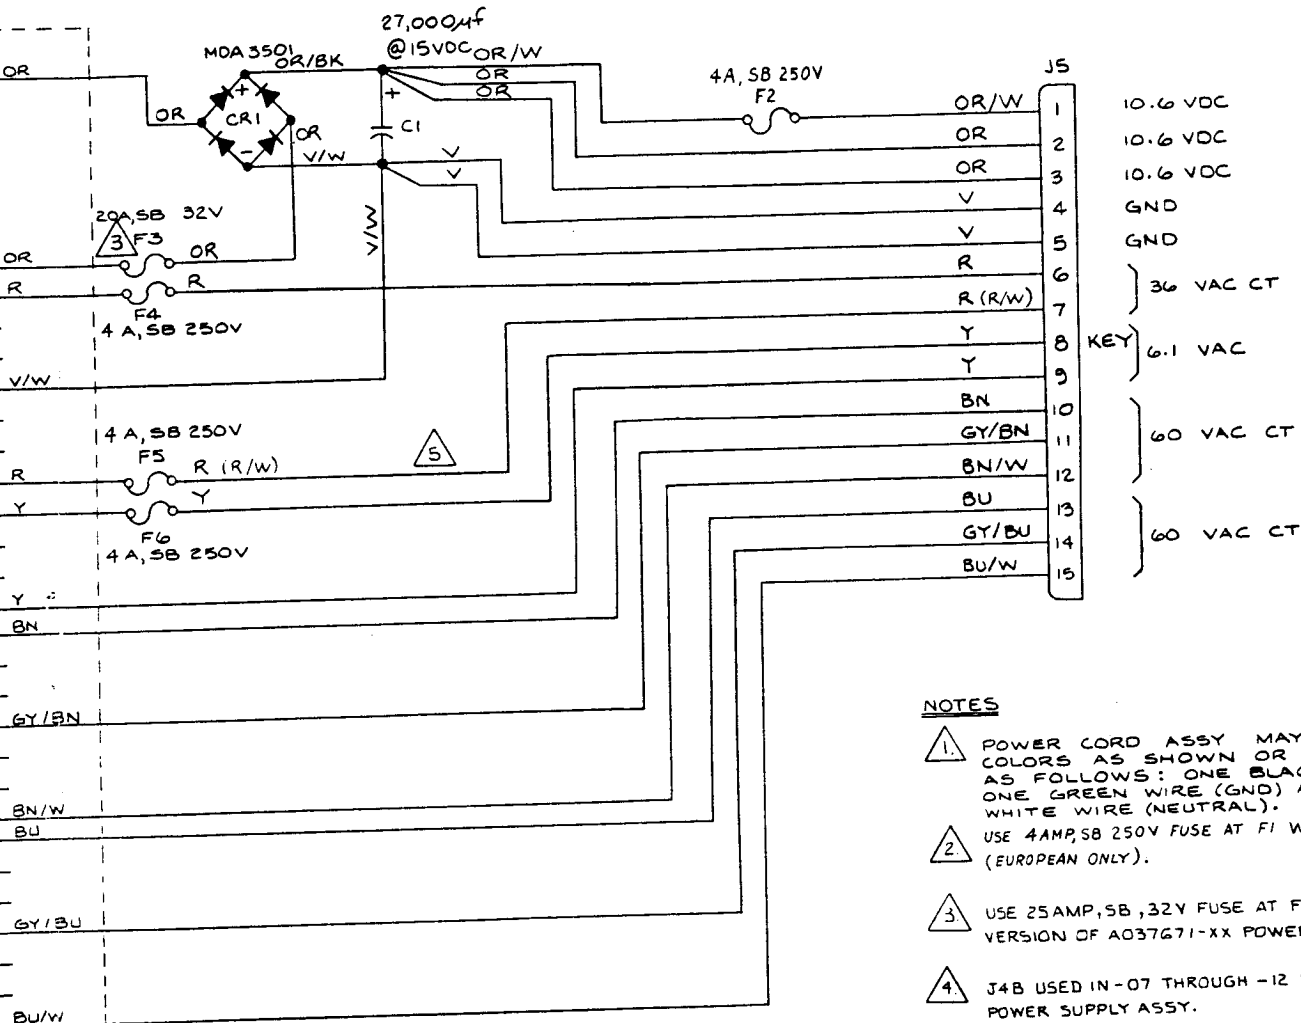 27,000µf
@15VDC
MDA 3501
OR/BK
OR/W
OR
OR
OR
4A, SB 250V
F2
J5
+
CR1
-
+
C1
OR
OR
V/W
V
V
V/W
OR/W 1 10.6 VDC
OR 2 10.6 VDC
OR 3 10.6 VDC
V 4 GND
V 5 GND
R 6
36 VAC CT
R (R/W) 7
Y 8 KEY
6.1 VAC
Y 9
BN 10
GY/BN 11
60 VAC CT
BN/W 12
BU 13
GY/BU 14
60 VAC CT
BU/W 15
20A, SB 32V
3 F3
OR
OR
R
R
F4
4 A, SB 250V
V/W
4 A, SB 250V
F5
R
R (R/W)
5
Y
Y
F6
4 A, SB 250V
Y
BN
GY/BN
BN/W
BU
GY/BU
BU/W
NOTES
1. POWER CORD ASSY MAY
COLORS AS SHOWN OR
AS FOLLOWS: ONE BLAC
ONE GREEN WIRE (GND) A
WHITE WIRE (NEUTRAL).
2. USE 4AMP, SB 250V FUSE AT F1 W
(EUROPEAN ONLY).
3. USE 25AMP, SB, 32V FUSE AT F
VERSION OF A037671-XX POWE
4. J4B USED IN -07 THROUGH -12
POWER SUPPLY ASSY.